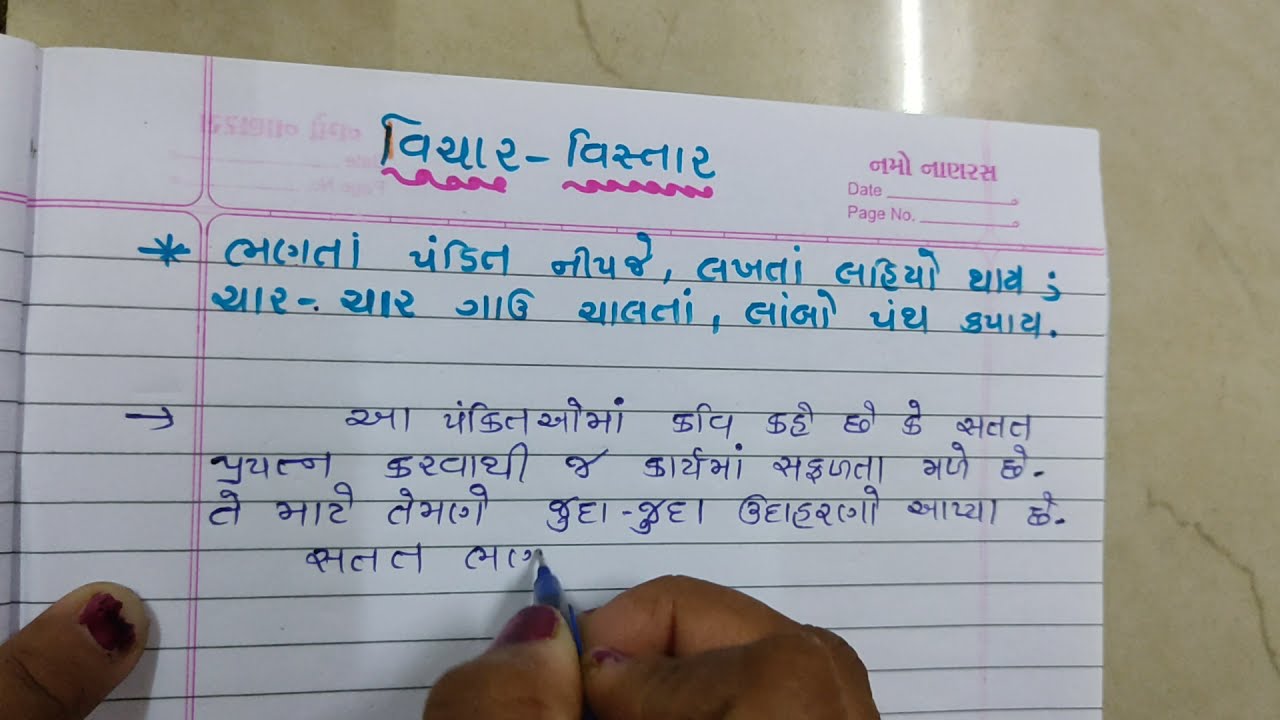 વિચાર - વિસ્તાર
નમો નાણરસ
Date
Page No.
* ભણતાં પંડિત નીપજે, લખતાં લહિયો થાય ;
ચાર - ચાર ગાઉ ચાલતાં, લાંબો પંથ કપાય.
→ આ પંક્તિઓમાં કવિ કહે છે કે સતત
પ્રયત્ન કરવાથી જ કાર્યમાં સફળતા મળે છે.
તે માટે તેમણે જુદા - જુદા ઉદાહરણો આપ્યા છે.
સતત ભણ